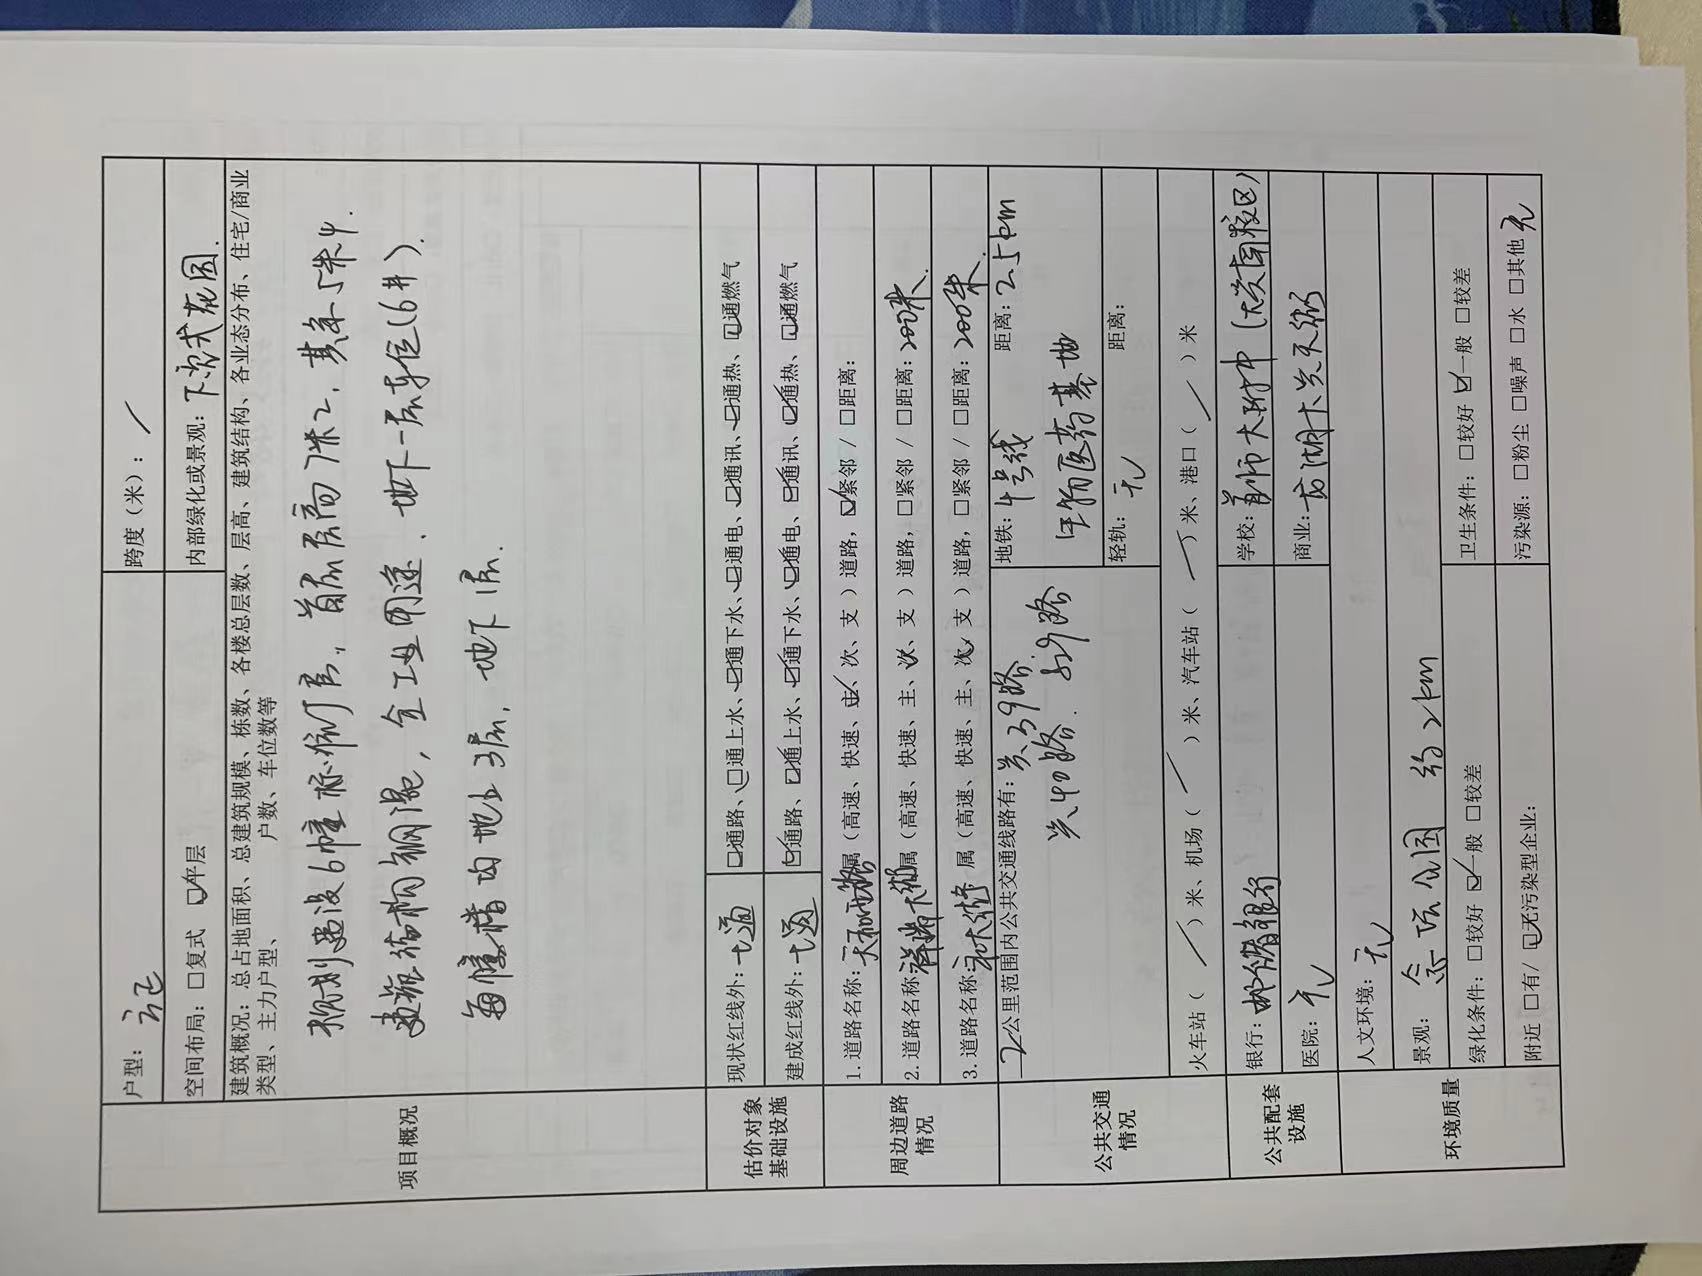 户型：
跨度（米）：/
项目概况
空间布局：□复式 ☑平层
内部绿化或景观：下沉式花园.
建筑概况：总占地面积、总建筑规模、栋数、各楼总层数、层高、建筑结构、各业态分布、住宅/商业
类型、主力户型、 户数、车位数等
规划建设6幢标准厂房，首层层高7米2，其余5米4.
建筑结构钢混，全工业用途、地下一层车位(6#).
每幢楼均地上3层，地下1层.
估价对象
基础设施
现状红线外：七通
☑通路、☑通上水、☑通下水、☑通电、☑通讯、☑通热、☑通燃气
建成红线外：七通
☑通路、☑通上水、☑通下水、☑通电、☑通讯、☑通热、☑通燃气
周边道路
情况
1.道路名称：天和西路属（高速、快速、主✓、次、支）道路，☑紧邻 / □距离：
2.道路名称 祥瑞大街属（高速、快速、主、次✓、支）道路，□紧邻 / □距离：200米.
3.道路名称 永大路 属（高速、快速、主、次✓、支）道路，□紧邻 / □距离：200米.
公共交通
情况
2公里范围内公共交通线路有：兴39路.
兴40路. 829路
地铁：4号线 距离：2.5km
生物医药基地
轻轨：无 距离：
火车站（/）米、机场（/）米、汽车站（/）米、港口（/）米
公共配套
设施
银行：邮储银行
学校：首师大附中（大兴南校区）
医院：无
商业：龙湖大兴天街
环境质量
人文环境：无
景观：念坛公园 约2km
绿化条件：□较好 ☑一般 □较差
卫生条件：□较好 ☑一般 □较差
附近 □有/ ☑无污染型企业：
污染源：□粉尘 □噪声 □水 □其他 无